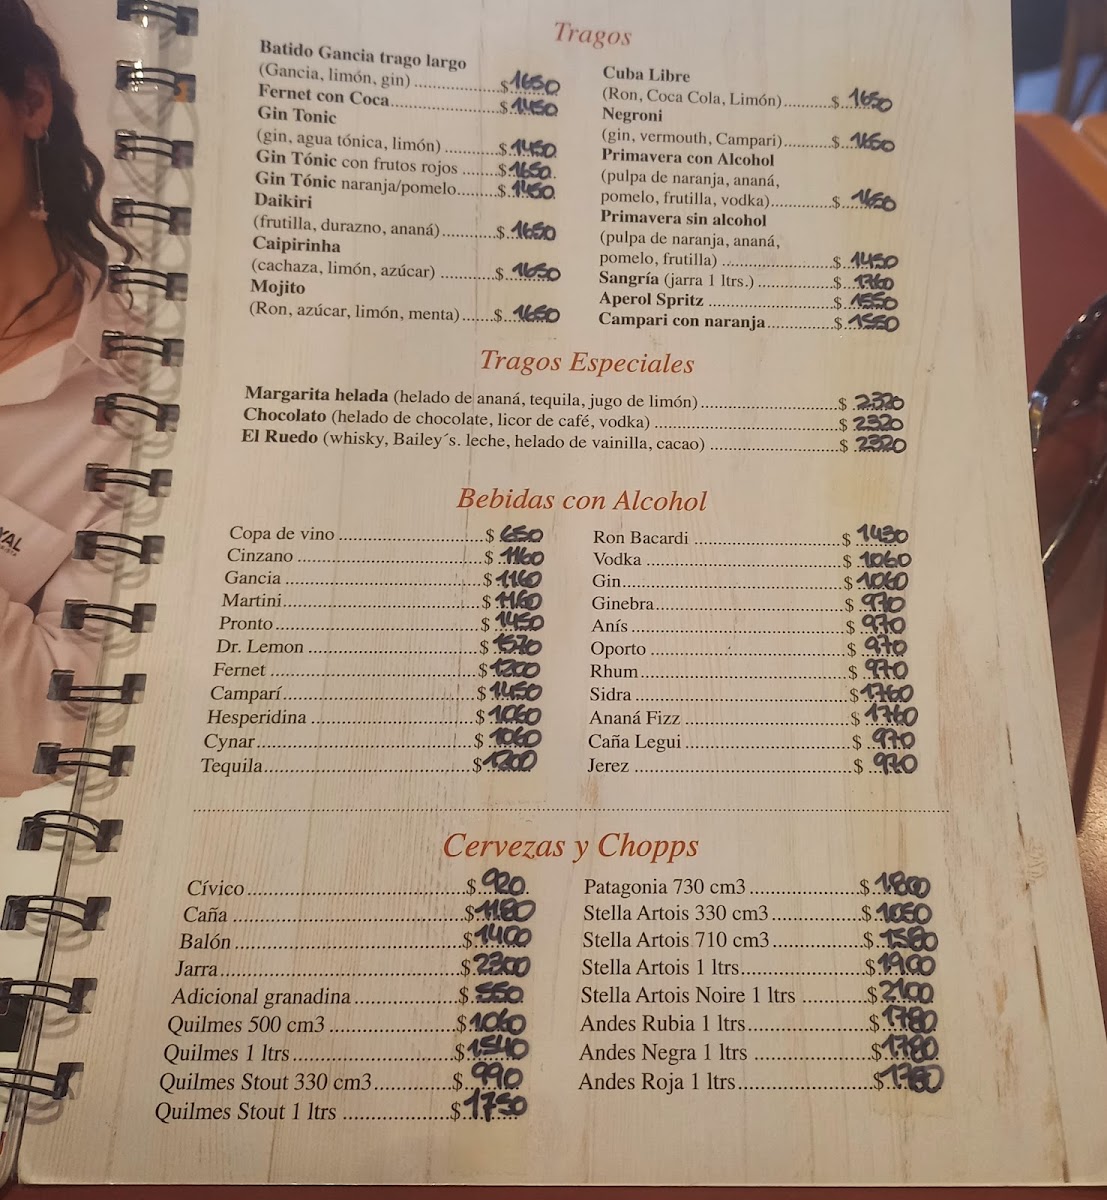 Tragos
Batido Gancia trago largo
(Gancia, limón, gin) ..................$ 1650
Fernet con Coca........................$ 1450
Gin Tonic
(gin, agua tónica, limón) ...........$ 1450
Gin Tónic con frutos rojos .......$ 1650
Gin Tónic naranja/pomelo........$ 1450
Daikiri
(frutilla, durazno, ananá)...........$ 1650
Caipirinha
(cachaza, limón, azúcar) ...........$ 1650
Mojito
(Ron, azúcar, limón, menta).......$ 1650
Cuba Libre
(Ron, Coca Cola, Limón)..........$ 1650
Negroni
(gin, vermouth, Campari)..........$ 1650
Primavera con Alcohol
(pulpa de naranja, ananá,
pomelo, frutilla, vodka).............$ 1650
Primavera sin alcohol
(pulpa de naranja, ananá,
pomelo, frutilla) ........................$ 1450
Sangría (jarra 1 ltrs.) .................$ 1760
Aperol Spritz ...........................$ 1550
Campari con naranja...............$ 1550
Tragos Especiales
Margarita helada (helado de ananá, tequila, jugo de limón)..............................$ 2320
Chocolato (helado de chocolate, licor de café, vodka) ........................................$ 2320
El Ruedo (whisky, Bailey´s. leche, helado de vainilla, cacao) ............................$ 2320
Bebidas con Alcohol
Copa de vino ..............................$ 650
Cinzano .......................................$ 1160
Gancia .........................................$ 1160
Martini.........................................$ 1160
Pronto..........................................$ 1450
Dr. Lemon ...................................$ 1570
Fernet ..........................................$ 1200
Camparí.......................................$ 1450
Hesperidina .................................$ 1060
Cynar...........................................$ 1060
Tequila.........................................$ 1200
Ron Bacardi ................................$ 1430
Vodka .........................................$ 1060
Gin..............................................$ 1060
Ginebra.......................................$ 970
Anís ............................................$ 970
Oporto ........................................$ 970
Rhum..........................................$ 970
Sidra ...........................................$ 1760
Ananá Fizz .................................$ 1760
Caña Legui .................................$ 970
Jerez ...........................................$ 970
Cervezas y Chopps
Cívico........................................$ 920
Caña ..........................................$ 1180
Balón.........................................$ 1400
Jarra...........................................$ 2300
Adicional granadina ..................$ 550
Quilmes 500 cm3 ......................$ 1060
Quilmes 1 ltrs............................$ 1540
Quilmes Stout 330 cm3.............$ 990
Quilmes Stout 1 ltrs ..................$ 1750
Patagonia 730 cm3 ...................$ 1800
Stella Artois 330 cm3...............$ 1050
Stella Artois 710 cm3...............$ 1580
Stella Artois 1 ltrs.....................$ 1900
Stella Artois Noire 1 ltrs ..........$ 2100
Andes Rubia 1 ltrs....................$ 1780
Andes Negra 1 ltrs ...................$ 1780
Andes Roja 1 ltrs......................$ 1780